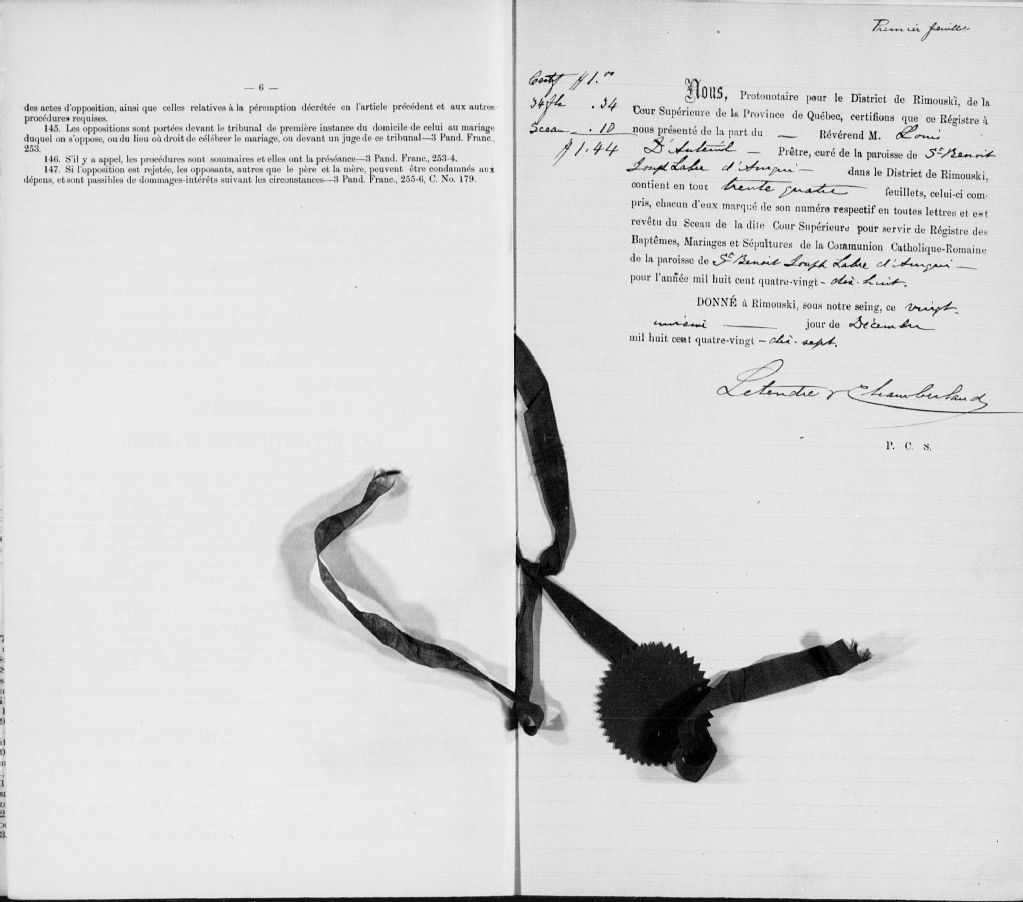 — 6 —
des actes d'opposition, ainsi que celles relatives à la péremption décrétée en l'article précédent et aux autres
procédures requises.
145. Les oppositions sont portées devant le tribunal de première instance du domicile de celui au mariage
duquel on s'oppose, ou du lieu où droit de célébrer le mariage, ou devant un juge de ce tribunal—3 Pand. Franc.,
253.
146. S'il y a appel, les procédures sont sommaires et elles ont la préséance—3 Pand. Franc., 253-4.
147. Si l'opposition est rejetée, les opposants, autres que le père et la mère, peuvent être condamnés aux
dépens, et sont passibles de dommages-intérêts suivant les circonstances—3 Pand. Franc., 255-6, C. No. 179.
Premier feuillet
Certif $1.00
34 fls .34
Sceau .10
$1.44
Nous, Protonotaire pour le District de Rimouski, de la
Cour Supérieure de la Province de Québec, certifions que ce Régistre à
nous présenté de la part du — Révérend M. Louis
D'Auteuil — Prêtre, curé de la paroisse de St Benoit
Joseph Labre d'Amqui — dans le District de Rimouski,
contient en tout trente quatre feuillets, celui-ci com-
pris, chacun d'eux marqué de son numéro respectif en toutes lettres et est
revêtu du Sceau de la dite Cour Supérieure pour servir de Régistre des
Baptêmes, Mariages et Sépultures de la Communion Catholique-Romaine
de la paroisse de St Benoit Joseph Labre d'Amqui —
pour l'année mil huit cent quatre-vingt - dix-huit.
DONNÉ à Rimouski, sous notre seing, ce vingt-
jour de Décembre
mil huit cent quatre-vingt — dix-sept.
Letendre & Chamberland
P. C. S.